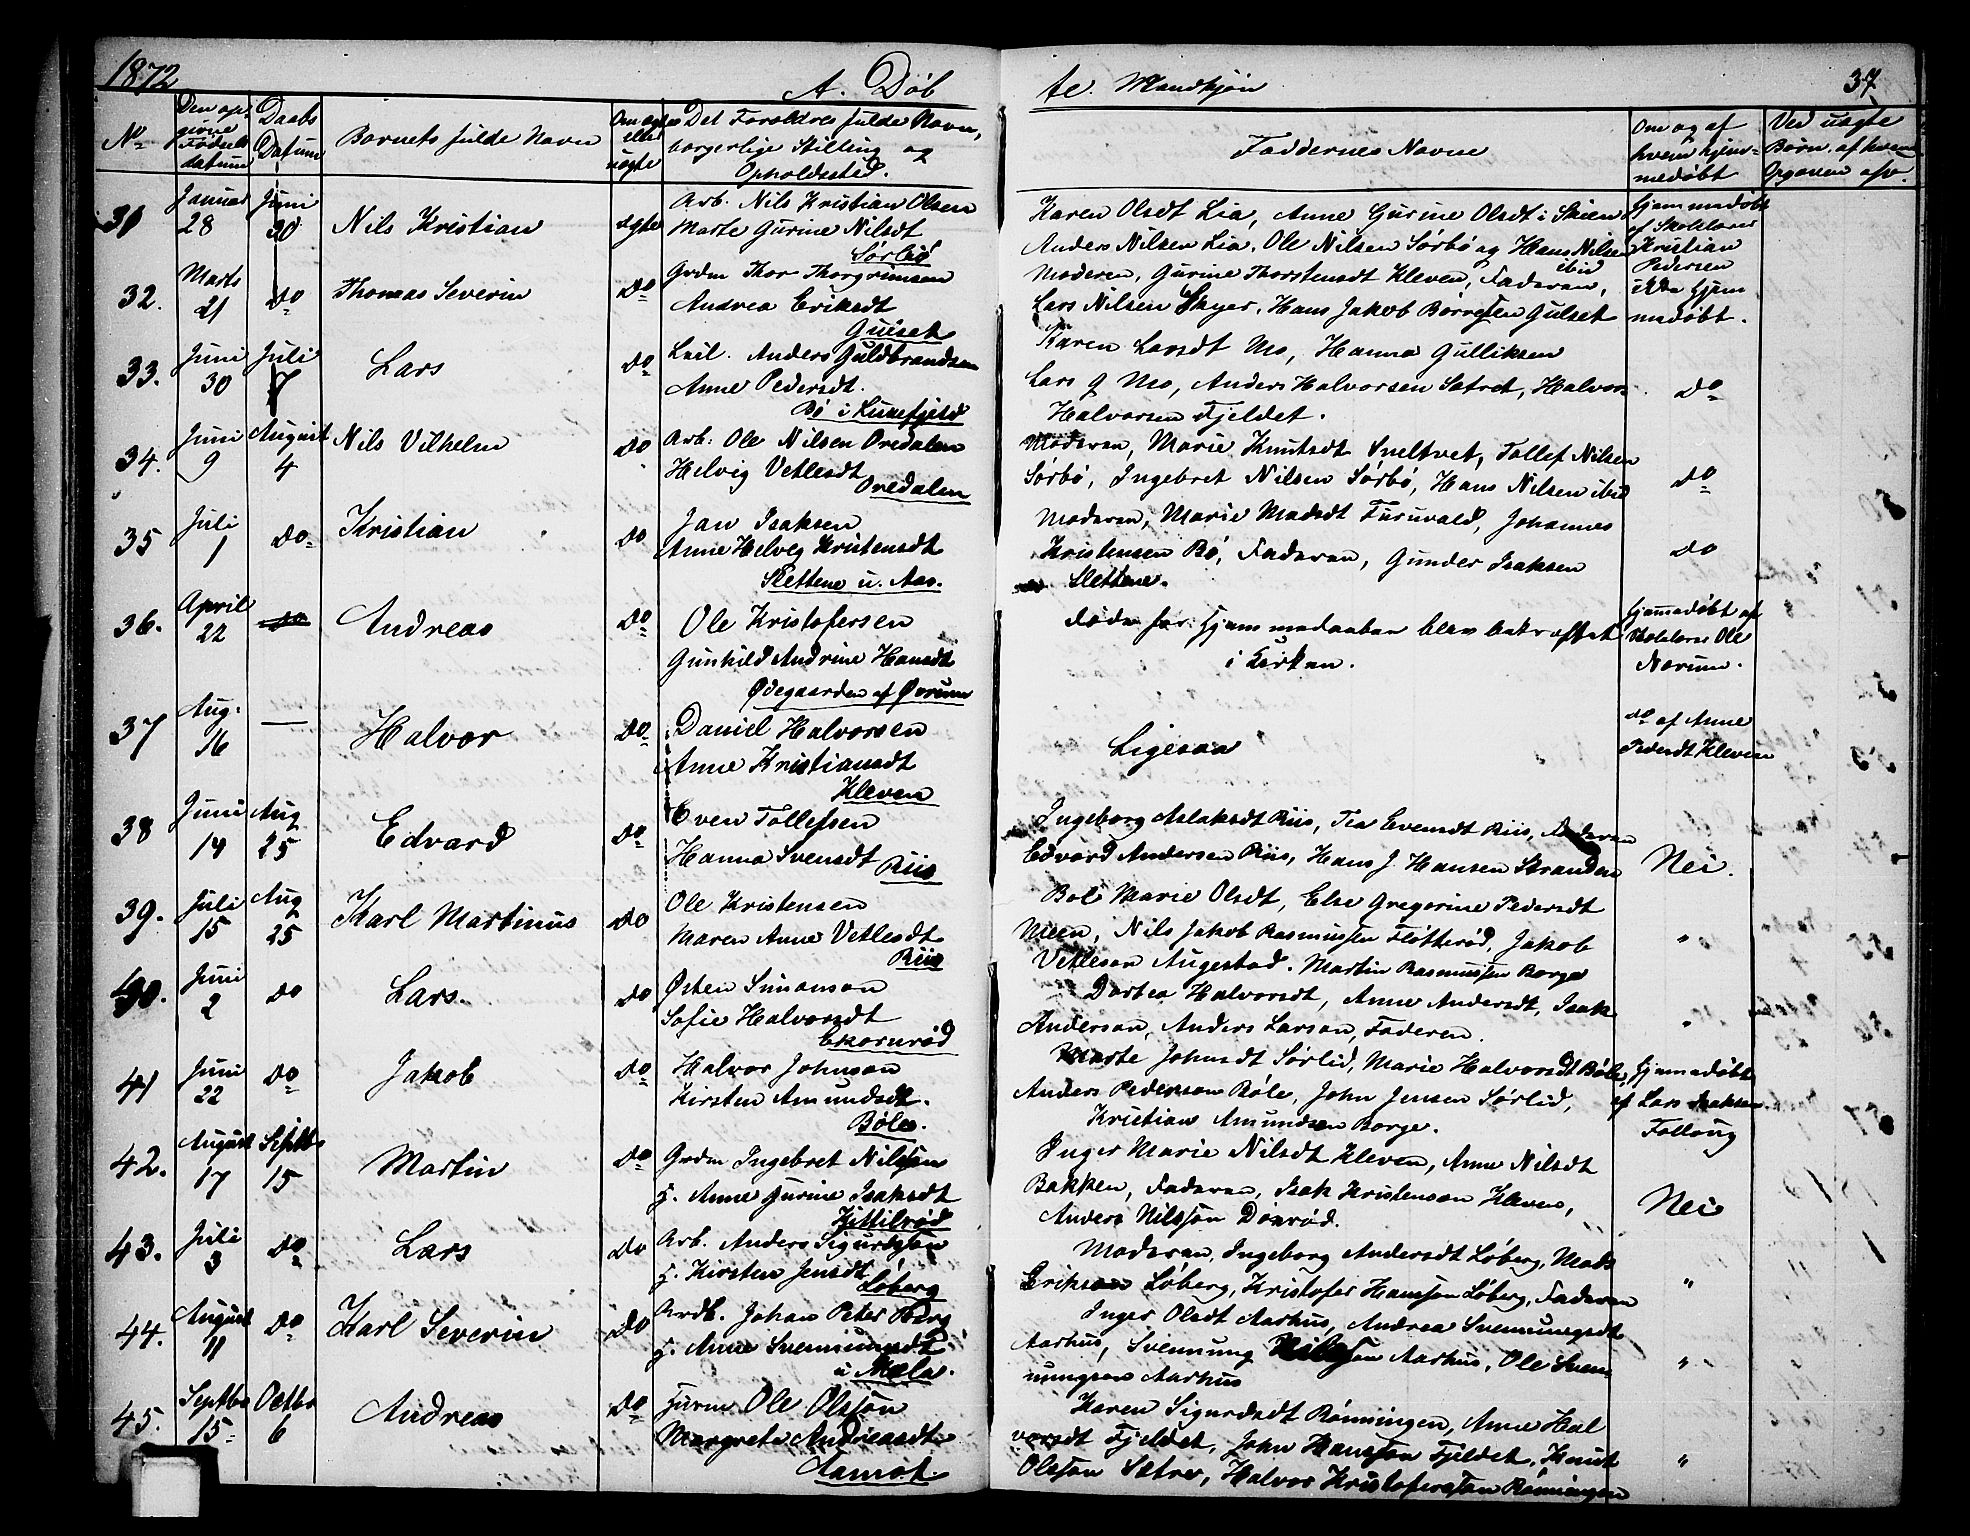 1872
A. Døb
te. Mandkjøn
37
No
Den op-
givne
Fødsels
datum
Daabs
Datum
Barnets fulde Navn
Om ægte
eller
uægte
Det Foreldres fulde Navn,
borgerlige Stilling og
Opholdssted.
Faddernes Navne
Om og af
hvem hjem-
medøbt
Ved uægte
Børn, af hvem
Opgaven
31
Januar
28
Juni
30
Nils Kristian
ægte
Arb. Nils Kristian Olsen
Marte Gurine Nilsdt
Sørbø
Karen Olsdt Lia, Anne Gurine Olsdt i Skien
Anders Nilsen Lia, Ole Nilsen Sørbø og Hans Nilsen
ibid
Hjemmedøbt
af Skolelærer
Kristian
Pedersen
32.
Marts
21
do
Thomas Severin
do
Grdm Thor Thorgrimsen
Andrea Eriksdt
Gulset
Moderen, Gurine Thorstensdt Kleven, Faderen,
Lars Nilsen Skyer, Hans Jakob Børresen Gulset
ikke hjem
medøbt.
33.
Juni
30
Juli
7
Lars
do
Leil. Anders Guldbrandsen
Anne Pedersdt.
Bø i Luxefjeld
Karen Larsdt Mo, Hanna Gulliksen
Lars G Mo, Anders Halvorsen Sætret, Halvor
Halvorsen Fjeldet.
do
34.
Juni
9
August
4
Nils Vilhelm
do
Arb: Ole Nilsen Oredalen
Helvig Vetlesdt
Oredalen
Moderen, Marie Knutsdt Sneltvet, Tollef Nilsen
Sørbø, Ingebret Nilsen Sørbø, Hans Nilsen ibid
do
35
Juli
1
do
Kristian
do
Jan Isaksen
Anne Helvig Kristensdt
Slettene u. Aas.
Moderen, Marie Madsdt Furuvald, Johannes
Kristensen Bø, Faderen, Gunder Isaksen
Slettene.
do
36.
April
22
do
Andreas
do
Ole Kristofersen
Gunhild Andrine Hansdt
Ødegaarden af Øvrum
døde før Hjemmedaaben blev bekræftet
i Kirken.
Hjemmedøbt af
Skolelærer Ole
Norum.
37
Aug.
16
—
Halvor
do
Daniel Halvorsen
Anne Kristiansdt
Kleven
Ligesaa
do af Anne
Pedersdt Kleven
38
Juni
14
Aug
25
Edvard
do
Even Tollefsen
Hanna Svensdt Riis
Ingeborg Aslaksdt Riis, Tea Evensdt Riis, Faderen
Edvard Andersen Riis, Hans J. Hansen Stranden
Nei.
39.
Juli
15
Aug
25
Karl Martinus
do
Ole Kristensen
Maren Anne Vetlesdt
Riis
Bol Marie Olsdt, Else Gregorine Pedersdt
Meen, Nils Jakob Rasmussen Flotterød, Jakob
Vetlesen Augestad. Martin Rasmussen Borge
"
40.
Juni
2
do
Lars.
do
Østen Simonsen
Sofie Halvorsdt
Ekornrød
Dortea Halvorsdt, Anne Andersdt, Isak
Andersen, Anders Larsen, Faderen.
"
41
Juni
22
do
Jakob
do
Halvor Johnsen
Kirsten Amundsdt.
Bøle.
Marte Johnsdt Sørlid, Marie Halvorsdt Bøle,
Anders Pedersen Bøle, John Jensen Sørlid,
Kristian Amundsen Borge.
Hjemmedøbt
af Lars Isaksen
Follaug
42.
August
17
Septbr
15
Martin
do
Grdm Ingebret Nilsson
H. Anne Gurine Isaksdt
Kittilrød
Inger Marie Nilsdt Kleven, Anne Nilsdt
Bakken, Faderen, Isak Kristensen Kleven,
Anders Nilsson Dønrød.
Nei
43.
Juli
3
do
Lars
do
Arb. Anders Sigurdsson
H. Kirsten Jensdt
Løberg
Moderen, Ingeborg Andersdt Løberg, Mads
Eriksen Løberg, Kristofer Hansson Løberg, Faderen
"
44.
August
11
do
Karl Severin
do
Ardb. Johan Peter Berg
H. Anne Svennumsdt
u Mæla.
Inger Olsdt Aarhus, Andrea Svennungsdt
Aarhus, Svennung Nilsson Aarhus, Ole Sven
nungsen Aarhus
"
45.
Septbr
15
Octbr
6
Andreas
do
Furm Ole Olsson
Margrete Andreasdt
Aamot.
Karen Sigurdsdt Rønningen, Anne Hal
vorsdt Fjeldet, John Hansson Fjeldet, Knut
Olsson Sætre, Halvor Kristoferssøn Rønningen
"